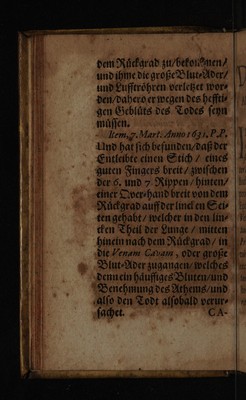 dem Rückgrad zu/ bekommen/
und ihme die große Blut-Ader/
und Lufftröhren verletzet wor-
den/ dahero er wegen des heffti-
gen Geblüts des Todes seyn
müssen.
Item, 7. Mart. Anno 1631. P.P.
Und hat sich befunden/ daß der
Entleibte einen Stich / eines
guten Fingers breit/ zwischen
der 6. und 7 Rippen / hinten/
einer Qver-hand breit von dem
Rückgrad auff der lincken Sei-
ten gehabt / welcher in den lin-
cken Theil der Lunge / mitten
hinein nach dem Rückgrad / in
die Venam Cavam, oder große
Blut-Ader zugangen/ welches
denn ein häuffiges Bluten/ und
Benehmung des Athems/ und
also den Todt alsobald verur-
sachet.
CA-